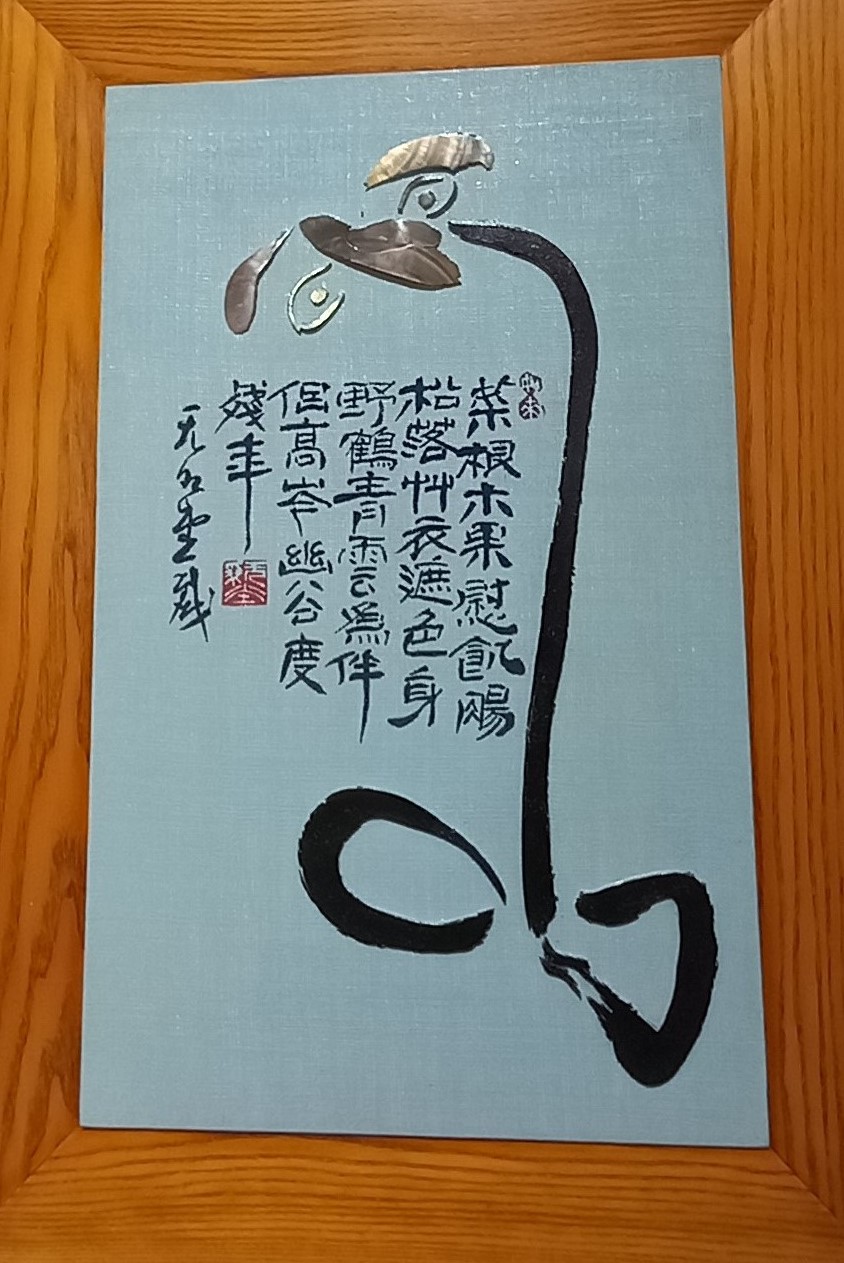 菜根木果慰飢腸
松落艸衣遮色身
野鶴青雲為伴
侶高岑幽谷度
殘年